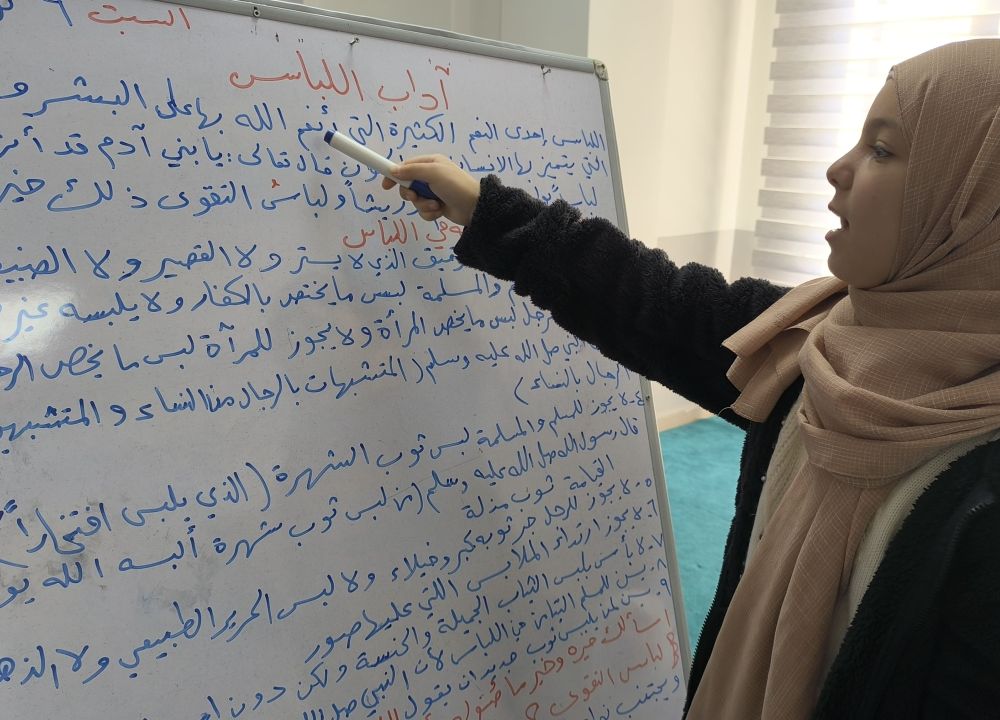 السبت ٦
آداب اللباس
اللباس إحدى النعم الكثيرة التي أنعم الله بها على البشر و
التي يتميز بها الانسان قال تعالى: يا بني آدم قد أنز
لباسًا وريشاً ولباسُ التقوى ذلك خير
في اللباس
الذي لا يستر ولا القصير ولا الضيق
والمسلمة لبس ما يختص بالكفار ولا يلبسه غير
لبس ما يخص المرأة ولا يجوز للمرآة لبس ما يخص الرجـ
النبي صل الله عليه وسلم (المتشبهات بالرجال من النساء و المتشبهين
الرجال بالنساء)
٤- لا يجوز للمسلم والمسلمة لبس ثوب الشهرة (الذي يلبس افتخاراً
قال رسول الله صل الله عليه وسلم (من لبس ثوب شهرة ألبسه الله يو
القيامة ثوب مذلة
٥- لا يجوز للرجل جر ثوبه كبر وخيلاء ولا لبس الحرير الطبيعي ولا الذهـ
٦- لا يجوز ارتداء الملابس اللتي عليها صور
٧- لا بأس بلبس الثياب الجميلة والحسنة ولكن دون
٨- يسن للمسلم التيامن في اللباس لأن النبي صل الله
٩- يسن لمن يلبس ثوب جديد ان يقول
اسألك خيره وخير ما صنع له
لباس التقوى
ويجتنب